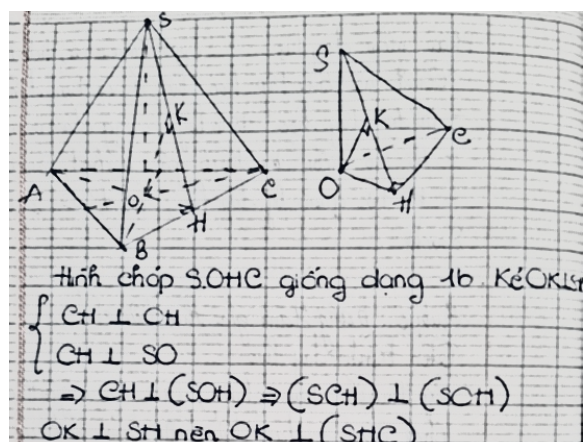 S
S
K
K
C
A
O
C
O
H
H
B
Hình chóp S.OHC giống dạng 1b Kẻ OK⊥SH
{ CH ⊥ CH
CH ⊥ SO
⇒ CH⊥(SOH) ⇒ (SCH) ⊥ (SOH)
OK ⊥ SH nên OK ⊥ (SHC)